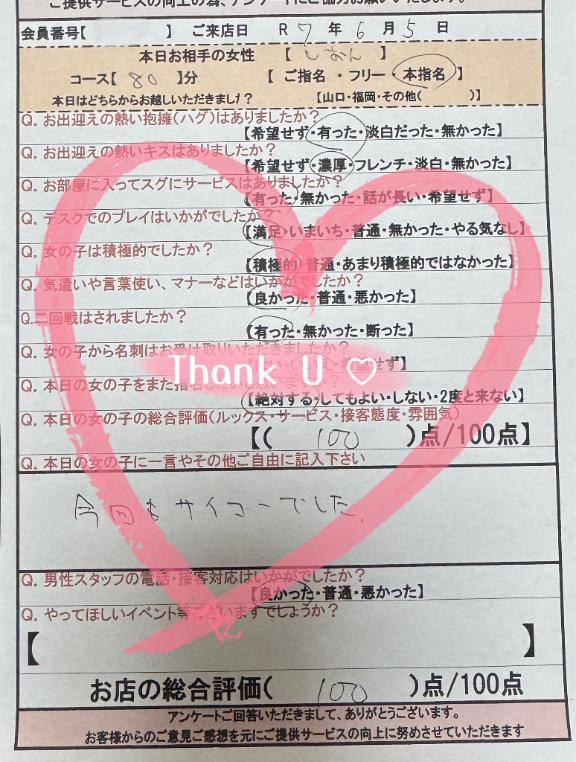 ご提供サービスの向上の為、アンケートにご協力お願いいたします。
会員番号【 】 ご来店日 R 7 年 6 月 5 日
本日お相手の女性 【 しおん 】
コース【 80 】分 【 ご指名・フリー・本指名 】
本日はどちらからお越しいただきました? 【山口・福岡・その他( )】
Q. お出迎えの熱い抱擁(ハグ)はありましたか?
【希望せず・有った・淡白だった・無かった】
Q. お出迎えの熱いキスはありましたか?
【希望せず・濃厚・フレンチ・淡白・無かった】
Q. お部屋に入ってスグにサービスはありましたか?
【有った・無かった・話が長い・希望せず】
Q. デスクでのプレイはいかがでしたか?
【満足・いまいち・普通・無かった・やる気なし】
Q. 女の子は積極的でしたか?
【積極的・普通・あまり積極的ではなかった】
Q. 気遣いや言葉使い、マナーなどはいかがでしたか?
【良かった・普通・悪かった】
Q.二回戦はされましたか?
【有った・無かった・断った】
Q. 女の子から名刺はお受け取りいただきましたか?
Thank U ♡
Q. 本日の女の子をまた指名
【絶対する・してもよい・しない・2度と来ない】
Q. 本日の女の子の総合評価(ルックス・サービス・接客態度・雰囲気)
【( 100 )点/100点】
Q. 本日の女の子に一言やその他ご自由に記入下さい
今回もサイコーでした
Q. 男性スタッフの電話・接客対応はいかがでしたか?
【良かった・普通・悪かった】
Q. やってほしいイベント等ございますでしょうか?
【 】
お店の総合評価( 100 )点/100点
アンケートご回答いただきまして、ありがとうございます。
お客様からのご意見ご感想を元にご提供サービスの向上に努めさせていただきます